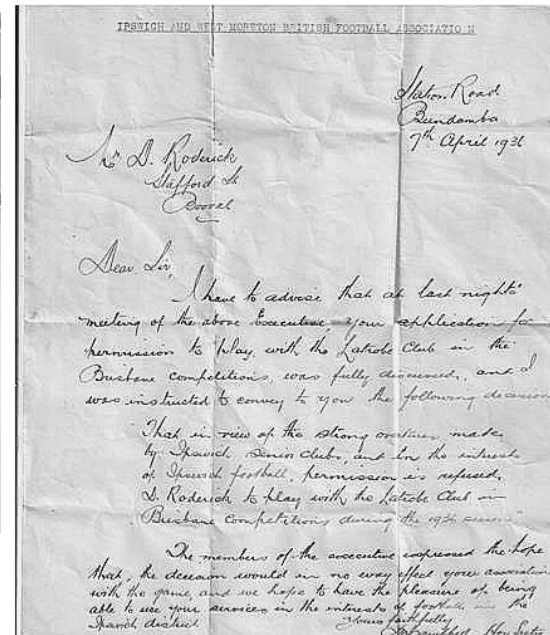 IPSWICH AND WEST MORETON BRITISH FOOTBALL ASSOCIATION
Station Road
Bundamba
7th April 1936
Mr D. Roderick
Stafford St
Booval
Dear Sir,
I have to advise that at last nights'
meeting of the above Executive, your application for
permission to play with the Latrobe Club in the
Brisbane competitions, was fully discussed, and I
was instructed to convey to you the following decision
That in view of the strong overtures made
by Ipswich senior clubs, and in the interests
of Ipswich football, permission is refused
D. Roderick to play with the Latrobe Club in
Brisbane Competitions during the 1936 season"
The members of the executive expressed the hope
that, the decision would in no way effect your association
with the game, and we hope to have the pleasure of being
able to use your services in the interests of football in the
Ipswich district.
Yours faithfully
Hon Secty